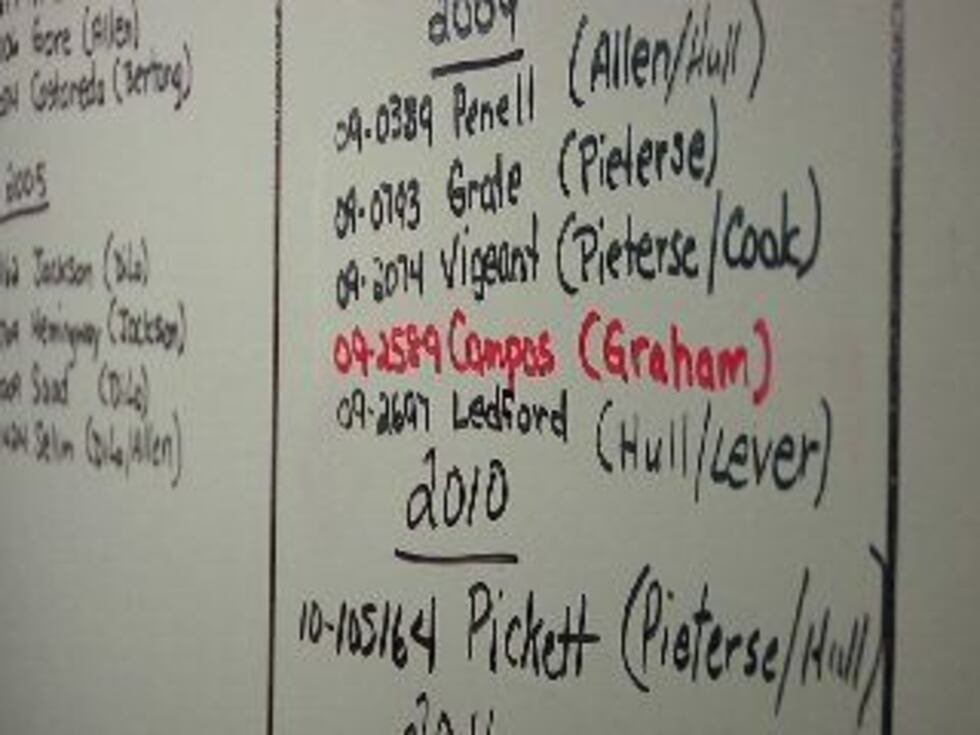 Gore (Allen)
Castaneda (Bertong)
2005
Jackson (DiLo)
Hemingway (Jackson)
Saad (DiLo)
Selim (DiLo/Allen)
2009
09-0389 Penell (Allen/Hull)
09-0793 Grate (Pieterse)
09-2074 Vigeant (Pieterse/Cook)
09-2589 Campos (Graham)
09-2697 Ledford (Hull/Lever)
2010
10-105164 Pickett (Pieterse/Hull)
2011